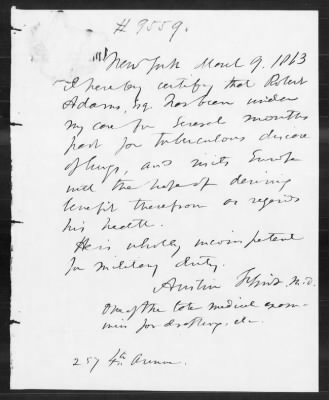 # 9559.
New York March 9. 1863
I hereby certify that Robert
Adams, Esq has been under
my care for several months
past for tuberculous disease
of lungs, and visits Europe
with the hope of deriving
benefit therefrom as regards
his health.
He is wholly incompetent
for military duty.
Austin Flint M.D.
One of the late medical exam-
iners for drafting, etc.
257 4th Avenue